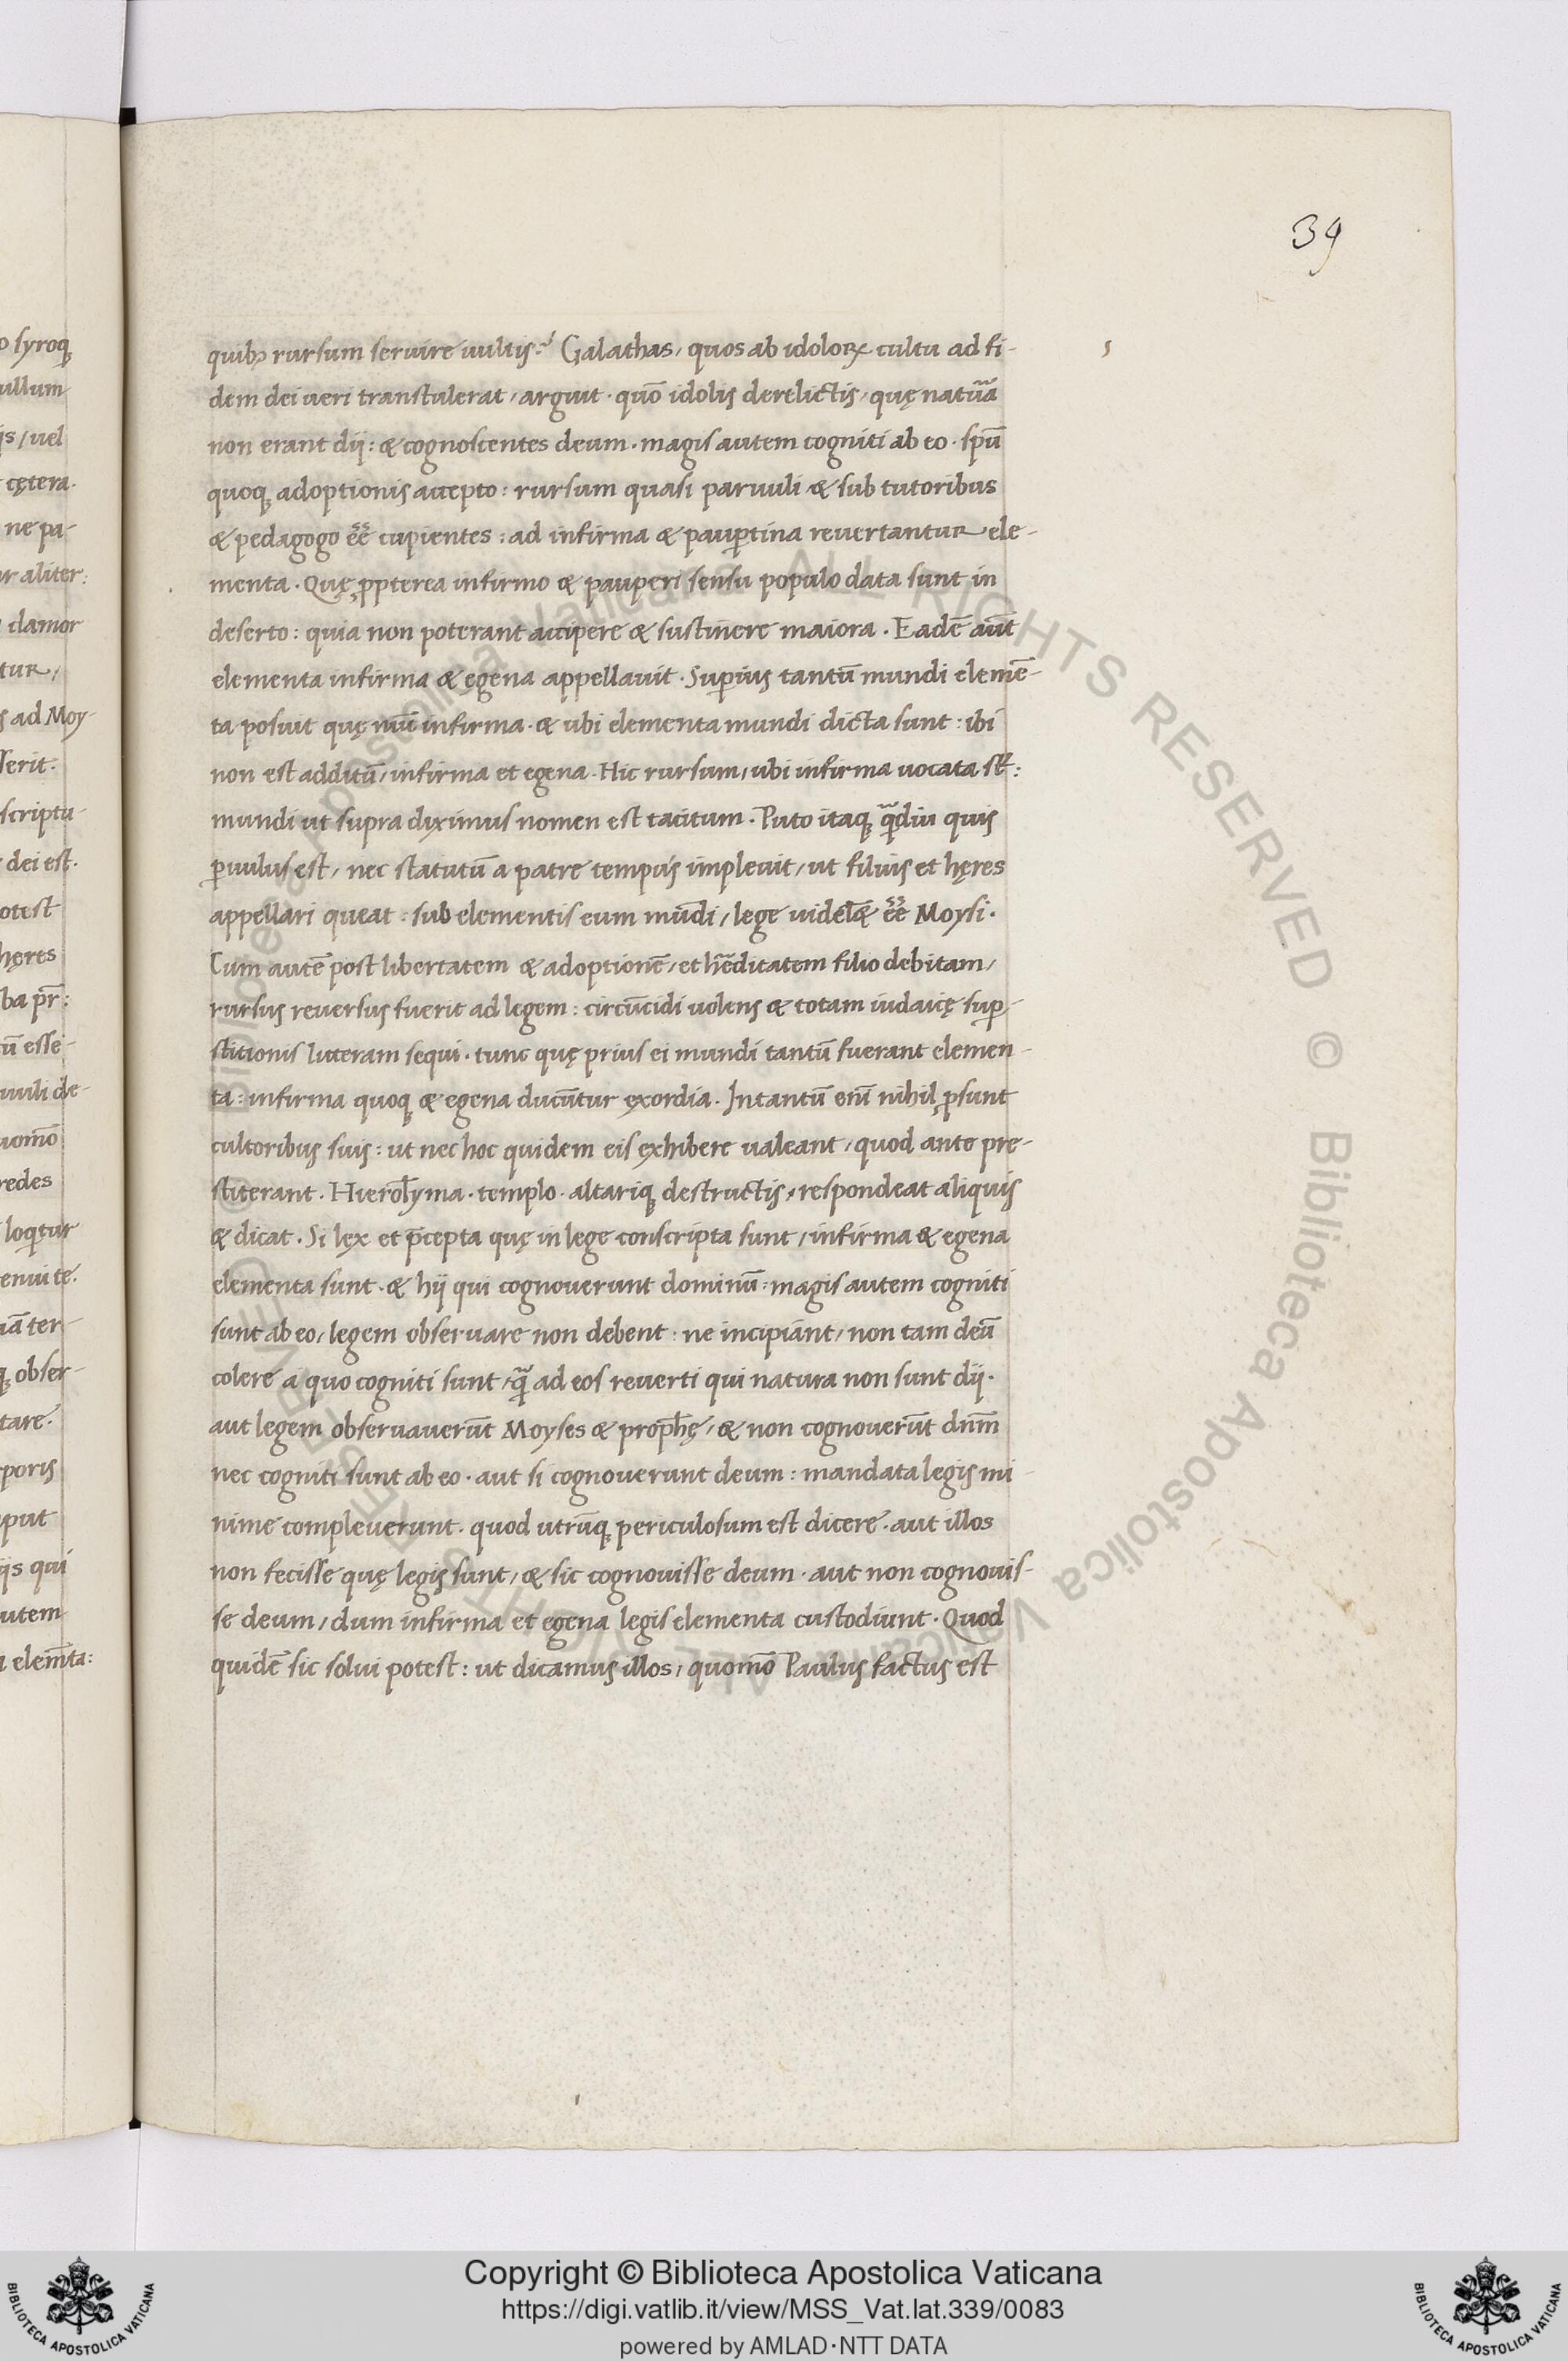 39
quibꝫ rursum seruire uultis? Galathas, quos ab idoloꝝ cultu ad fi-
dem dei ueri transtulerat, arguit · quō idolis derelictis, quę natura
non erant dij : & cognoscentes deum · magis autem cogniti ab eo · spū
quoqꝫ adoptionis accepto : rursum quasi paruuli & sub tutoribus
& pedagogo ēē cupientes : ad infirma & paup̄tina reuertantur ele-
menta · Quę ꝓpterea infirmo & pauperi sensu populo data sunt in
deserto : quia non poterant accipere & sustinere maiora · Eadē aūt
elementa infirma & egena appellauit · Suꝑius tantū mundi elemē-
ta posuit quę nūc infirma · & ubi elementa mundi dicta sunt : ibi
non est additū, infirma et egena · Hic rursum, ubi infirma uocata st̄ :
mundi ut supra diximus nomen est tacitum · Puto itaqꝫ qᵃ̄diu quis
ꝑuulus est, nec statutū a patre tempus impleuit, ut filius et hęres
appellari queat : sub elementis eum mūdi, lege uidel& ēē Moysi ·
Cum autē post libertatem & adoptionē, et hēditatem filio debitam,
rursus reuersus fuerit ad legem : circūcidi uolens & totam iudaicę suꝑ-
stitionis litteram sequi · tunc quę prius ei mundi tantū fuerant elemen-
ta : infirma quoqꝫ & egena ducūtur exordia · Intantū enī nihil ꝓsunt
cultoribus suis : ut nec hoc quidem eis exhibere ualeant, quod ante pre-
stiterant · Hierosl̄yma · templo · altariqꝫ destructis, respondeat aliquis
& dicat · Si lex et p̄cepta quę in lege conscripta sunt, infirma & egena
elementa sunt · & hij qui cognouerunt dominū : magis autem cogniti
sunt ab eo, legem obseruare non debent : ne incipiant, non tam deū
colere a quo cogniti sunt, qᵃ̄ ad eos reuerti qui natura non sunt dij ·
aut legem obseruauerūt Moyses & proph̄ę, & non cognouerūt dnm̄
nec cogniti sunt ab eo · aut si cognouerunt deum : mandata legis mi-
nime compleuerunt · quod utrūqꝫ periculosum est dicere · aut illos
non fecisse quę legis sunt, & sic cognouisse deum · aut non cognouis-
se deum, dum infirma et egena legis elementa custodiunt · Quod
quidē sic solui potest : ut dicamus illos, quomō Paulus factus est
Copyright © Biblioteca Apostolica Vaticana
https://digi.vatlib.it/view/MSS_Vat.lat.339/0083
powered by AMLAD·NTT DATA